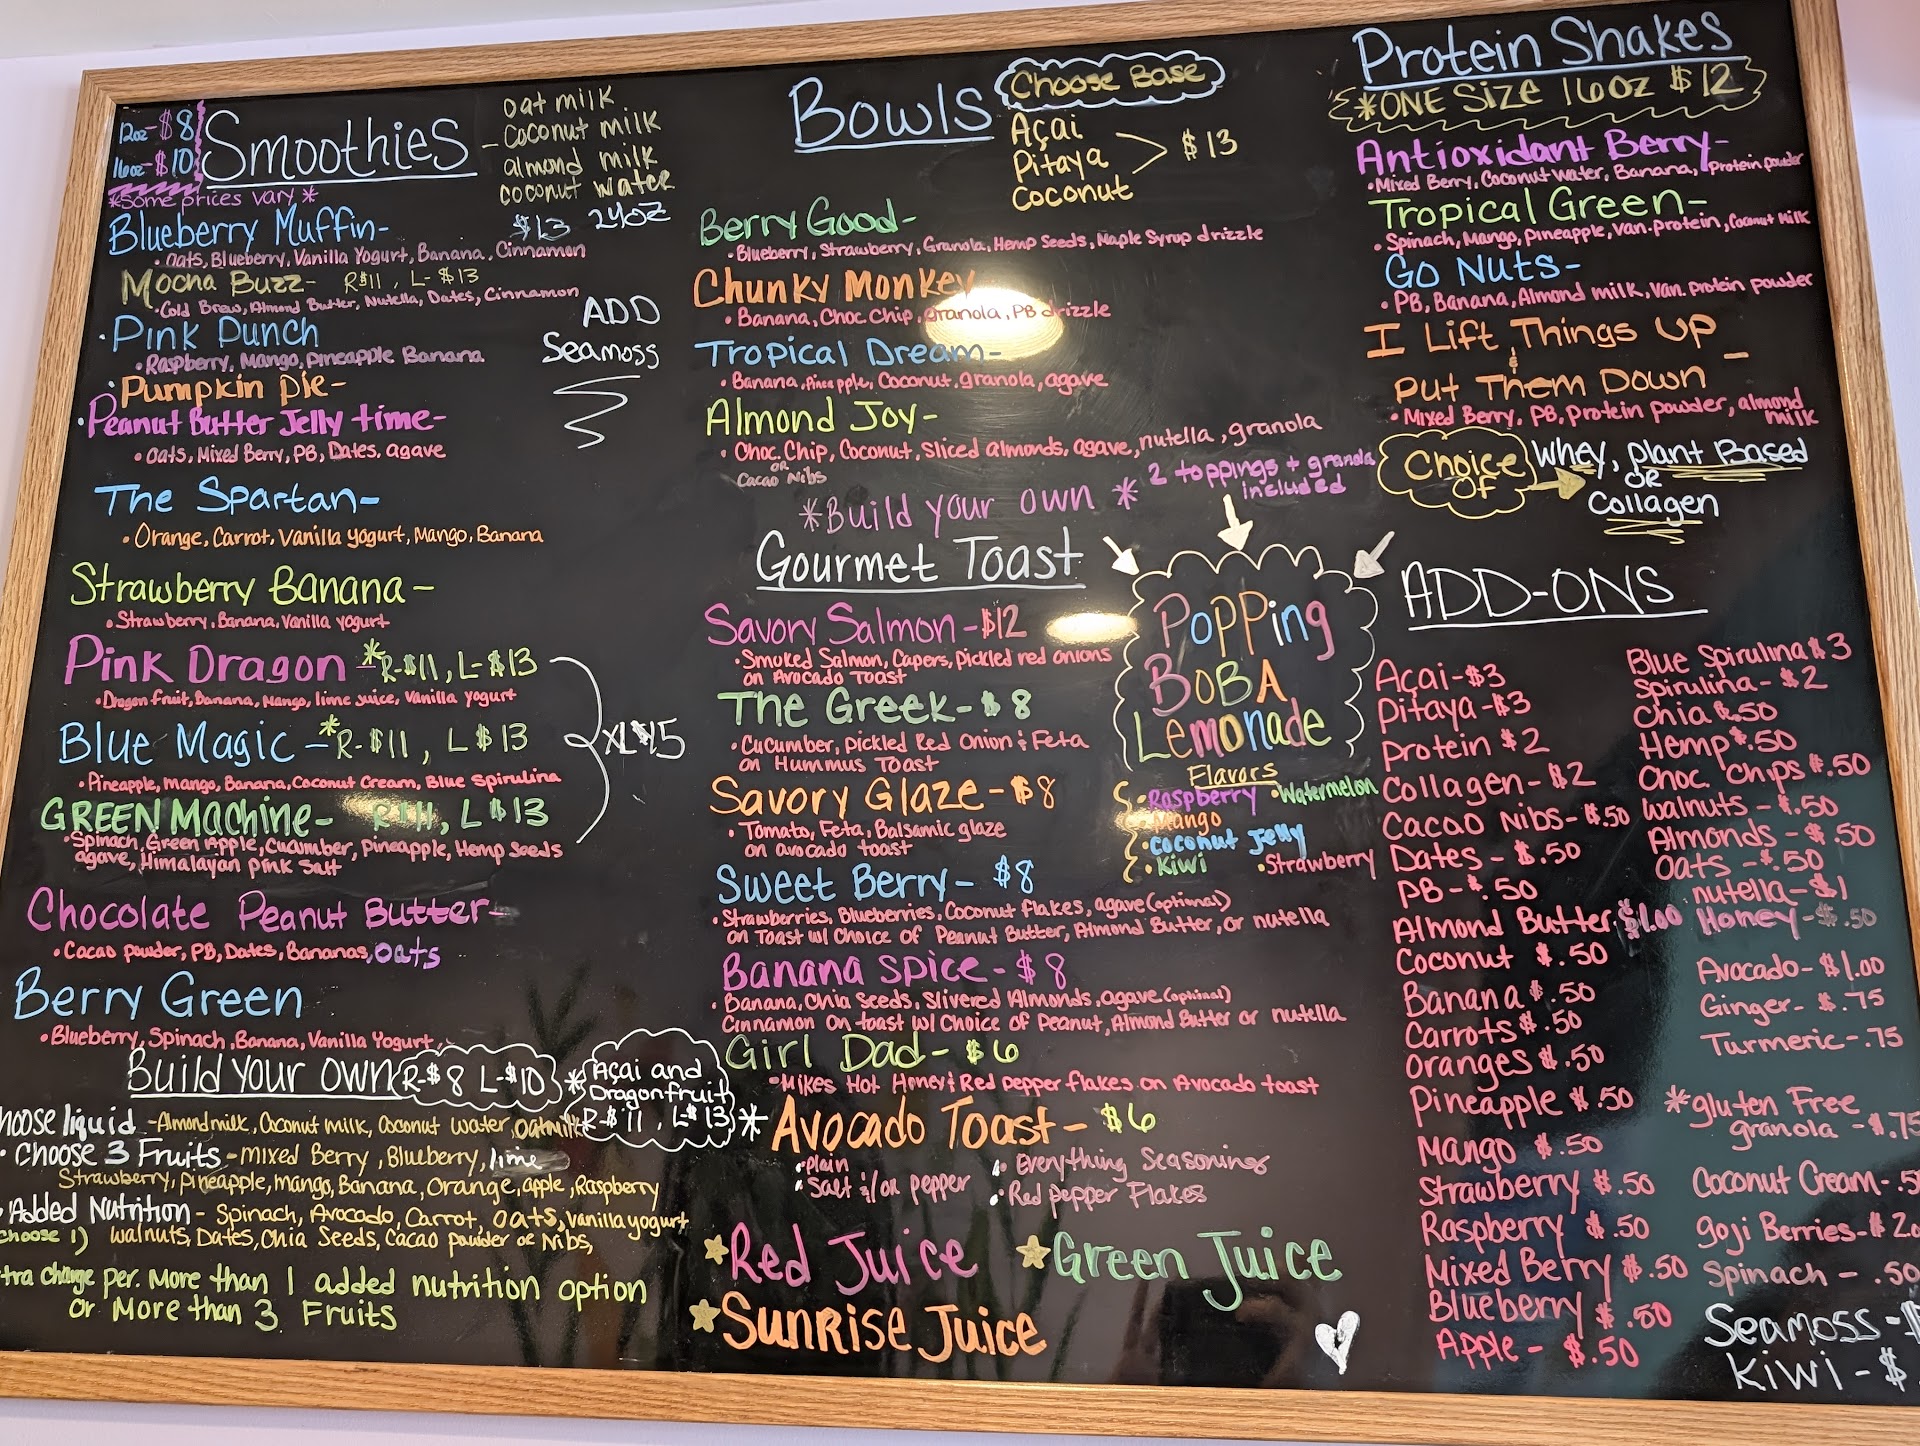 12oz- $8
16oz- $10
*Some prices vary *
Smoothies -
oat milk
coconut milk
almond milk
coconut water
$13 24oz
Blueberry Muffin-
• oats, Blueberry, Vanilla Yogurt, Banana, Cinnamon
Mocha Buzz- R$11, L- $13
• Cold Brew, Almond Butter, Nutella, Dates, Cinnamon
ADD
Seamoss
• Pink Punch
• Raspberry, Mango, Pineapple Banana
• Pumpkin Pie-
• Peanut Butter Jelly time-
• Oats, Mixed Berry, PB, Dates, agave
The Spartan-
• Orange, Carrot, Vanilla Yogurt, Mango, Banana
Strawberry Banana-
• Strawberry, Banana, Vanilla yogurt
Pink Dragon -*R-$11, L-$13
• Dragon fruit, Banana, Mango, lime juice, Vanilla yogurt
Blue Magic -*R-$11, L $13
• Pineapple, Mango, Banana, Coconut Cream, Blue Spirulina
XL $15
GREEN Machine- R $11, L $13
• Spinach, Green Apple, Cucumber, Pineapple, Hemp Seeds
agave, Himalayan pink Salt
Chocolate Peanut Butter-
• Cacao powder, PB, Dates, Bananas, oats
Berry Green
• Blueberry, Spinach, Banana, Vanilla Yogurt
Build your own R-$8 L-$10
* Açai and
Dragonfruit
R-$11, L-$13 *
hoose liquid - Almond milk, Coconut milk, Coconut water, oatmilk
• Choose 3 Fruits - mixed Berry, Blueberry, lime
Strawberry, pineapple, mango, Banana, Orange, apple, Raspberry
• Added Nutrition - Spinach, Avocado, Carrot, oats, vanilla yogurt
choose 1) walnuts, Dates, Chia Seeds, Cacao powder or Nibs,
tra charge per. More than 1 added nutrition option
or More than 3 Fruits
Bowls
Choose Base
Açai
Pitaya
Coconut
$13
Berry Good-
• Blueberry, Strawberry, Granola, Hemp Seeds, Maple Syrup drizzle
Chunky Monkey
• Banana, Choc. Chip, granola, PB drizzle
Tropical Dream-
• Banana, Pineapple, Coconut, granola, agave
Almond Joy-
• Choc. Chip, Coconut, Sliced almonds, agave, nutella, granola
or
Cacao Nibs
*Build your own *
2 toppings + granola
included
Gourmet Toast
Savory Salmon - $12
• Smoked Salmon, Capers, pickled red onions
on Avocado Toast
The Greek- $8
• Cucumber, pickled Red Onion & Feta
on Hummus Toast
Savory Glaze - $8
• Tomato, Feta, Balsamic glaze
on avocado toast
Sweet Berry- $8
• Strawberries, Blueberries, Coconut flakes, agave (optional)
on Toast w/ Choice of Peanut Butter, Almond Butter, or nutella
Banana Spice - $8
• Banana, Chia Seeds, Slivered Almonds, agave (optional)
Cinnamon on toast w/ Choice of peanut, Almond Butter or nutella
Girl Dad- $6
• Mikes Hot Honey & Red pepper flakes on Avocado toast
Avocado Toast- $6
• Plain
• Salt &/or pepper
• Everything Seasoning
• Red pepper Flakes
Red Juice
Green Juice
Sunrise Juice
Popping
Boba
Lemonade
Flavors
• Raspberry
• Watermelon
• Mango
• coconut Jelly
• Kiwi
• Strawberry
Protein Shakes
*ONE Size 16oz $12
Antioxidant Berry-
• Mixed Berry, Coconut Water, Banana, Protein powder
Tropical Green-
• Spinach, Mango, Pineapple, Van. protein, Coconut Milk
Go Nuts-
• PB, Banana, Almond milk, Van. protein powder
I Lift Things Up
&
Put Them Down -
• Mixed Berry, PB, protein powder, almond
milk
Choice
Of
Whey, plant Based
or
Collagen
ADD-ONS
Açai-$3
Pitaya-$3
Protein $2
Collagen- $2
Cacao Nibs- $.50
Dates - $.50
PB- $.50
Almond Butter $1.00
Coconut $.50
Banana $.50
Carrots $.50
Oranges $.50
Pineapple $.50
Mango $.50
Strawberry $.50
Raspberry $.50
Mixed Berry $.50
Blueberry $.50
Apple - $.50
Blue Spirulina $3
Spirulina- $2
Chia $.50
Hemp $.50
Choc. Chips $.50
walnuts - $.50
Almonds - $.50
oats - $.50
nutella-$1
Honey- $.50
Avocado- $1.00
Ginger- $.75
Turmeric-.75
*gluten Free
granola - $.75
Coconut Cream-.5
goji Berries-$2.0
Spinach - .50
Seamoss - $
Kiwi - $